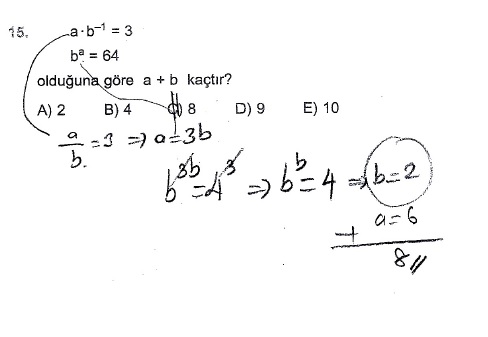 15. a·b⁻¹ = 3
bᵃ = 64
olduğuna göre a + b kaçtır?
A) 2 B) 4 C) 8 D) 9 E) 10
a/b = 3 ⇒ a = 3b
b³ᵇ = 4³ ⇒ bᵇ = 4 ⇒ b = 2
a = 6
+
8 //